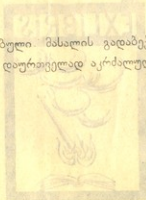 ბული მასალის გადაბე
დაურთველად აკრძალულ